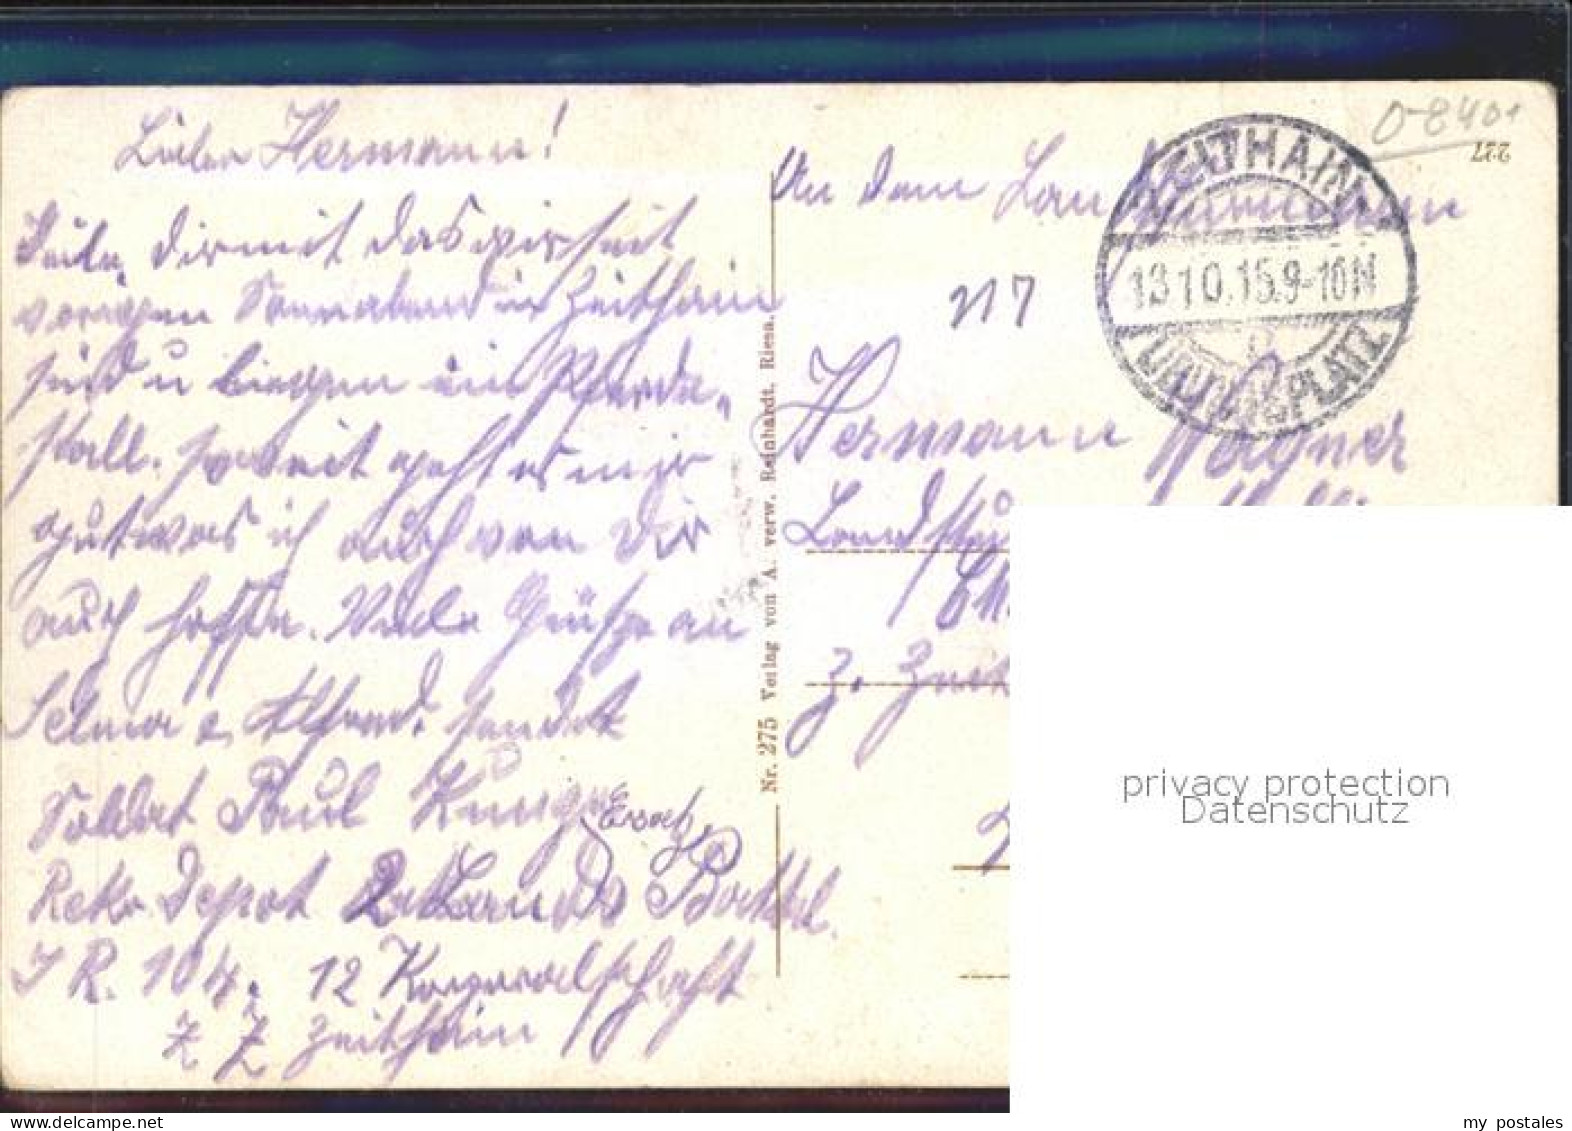 Lieber Hermann!
Teile Dir mit das wir seit
vorigen Sonnabend in Zeithain
sind u liegen im Pferde-
stall. soweit geht es mir
gut was ich auch von Dir
auch hoffe. Viele Grüße an
Selma u. Alfred. sendet
Soldat Paul
Ersatz
Rekr. Depot 2 Lands Battl.
I R. 104. 12 Korporalschaft
z Z Zeithain
Nr. 275 Verlag von A. verw. Reinhardt. Riesa.
An den Landsturmmann
ZEITHAIN
13 10.15.9-10N
ÜBUNGSPLATZ
0-8401
227
Hermann Wagner
z. Zeit
privacy protection
Datenschutz
my postales